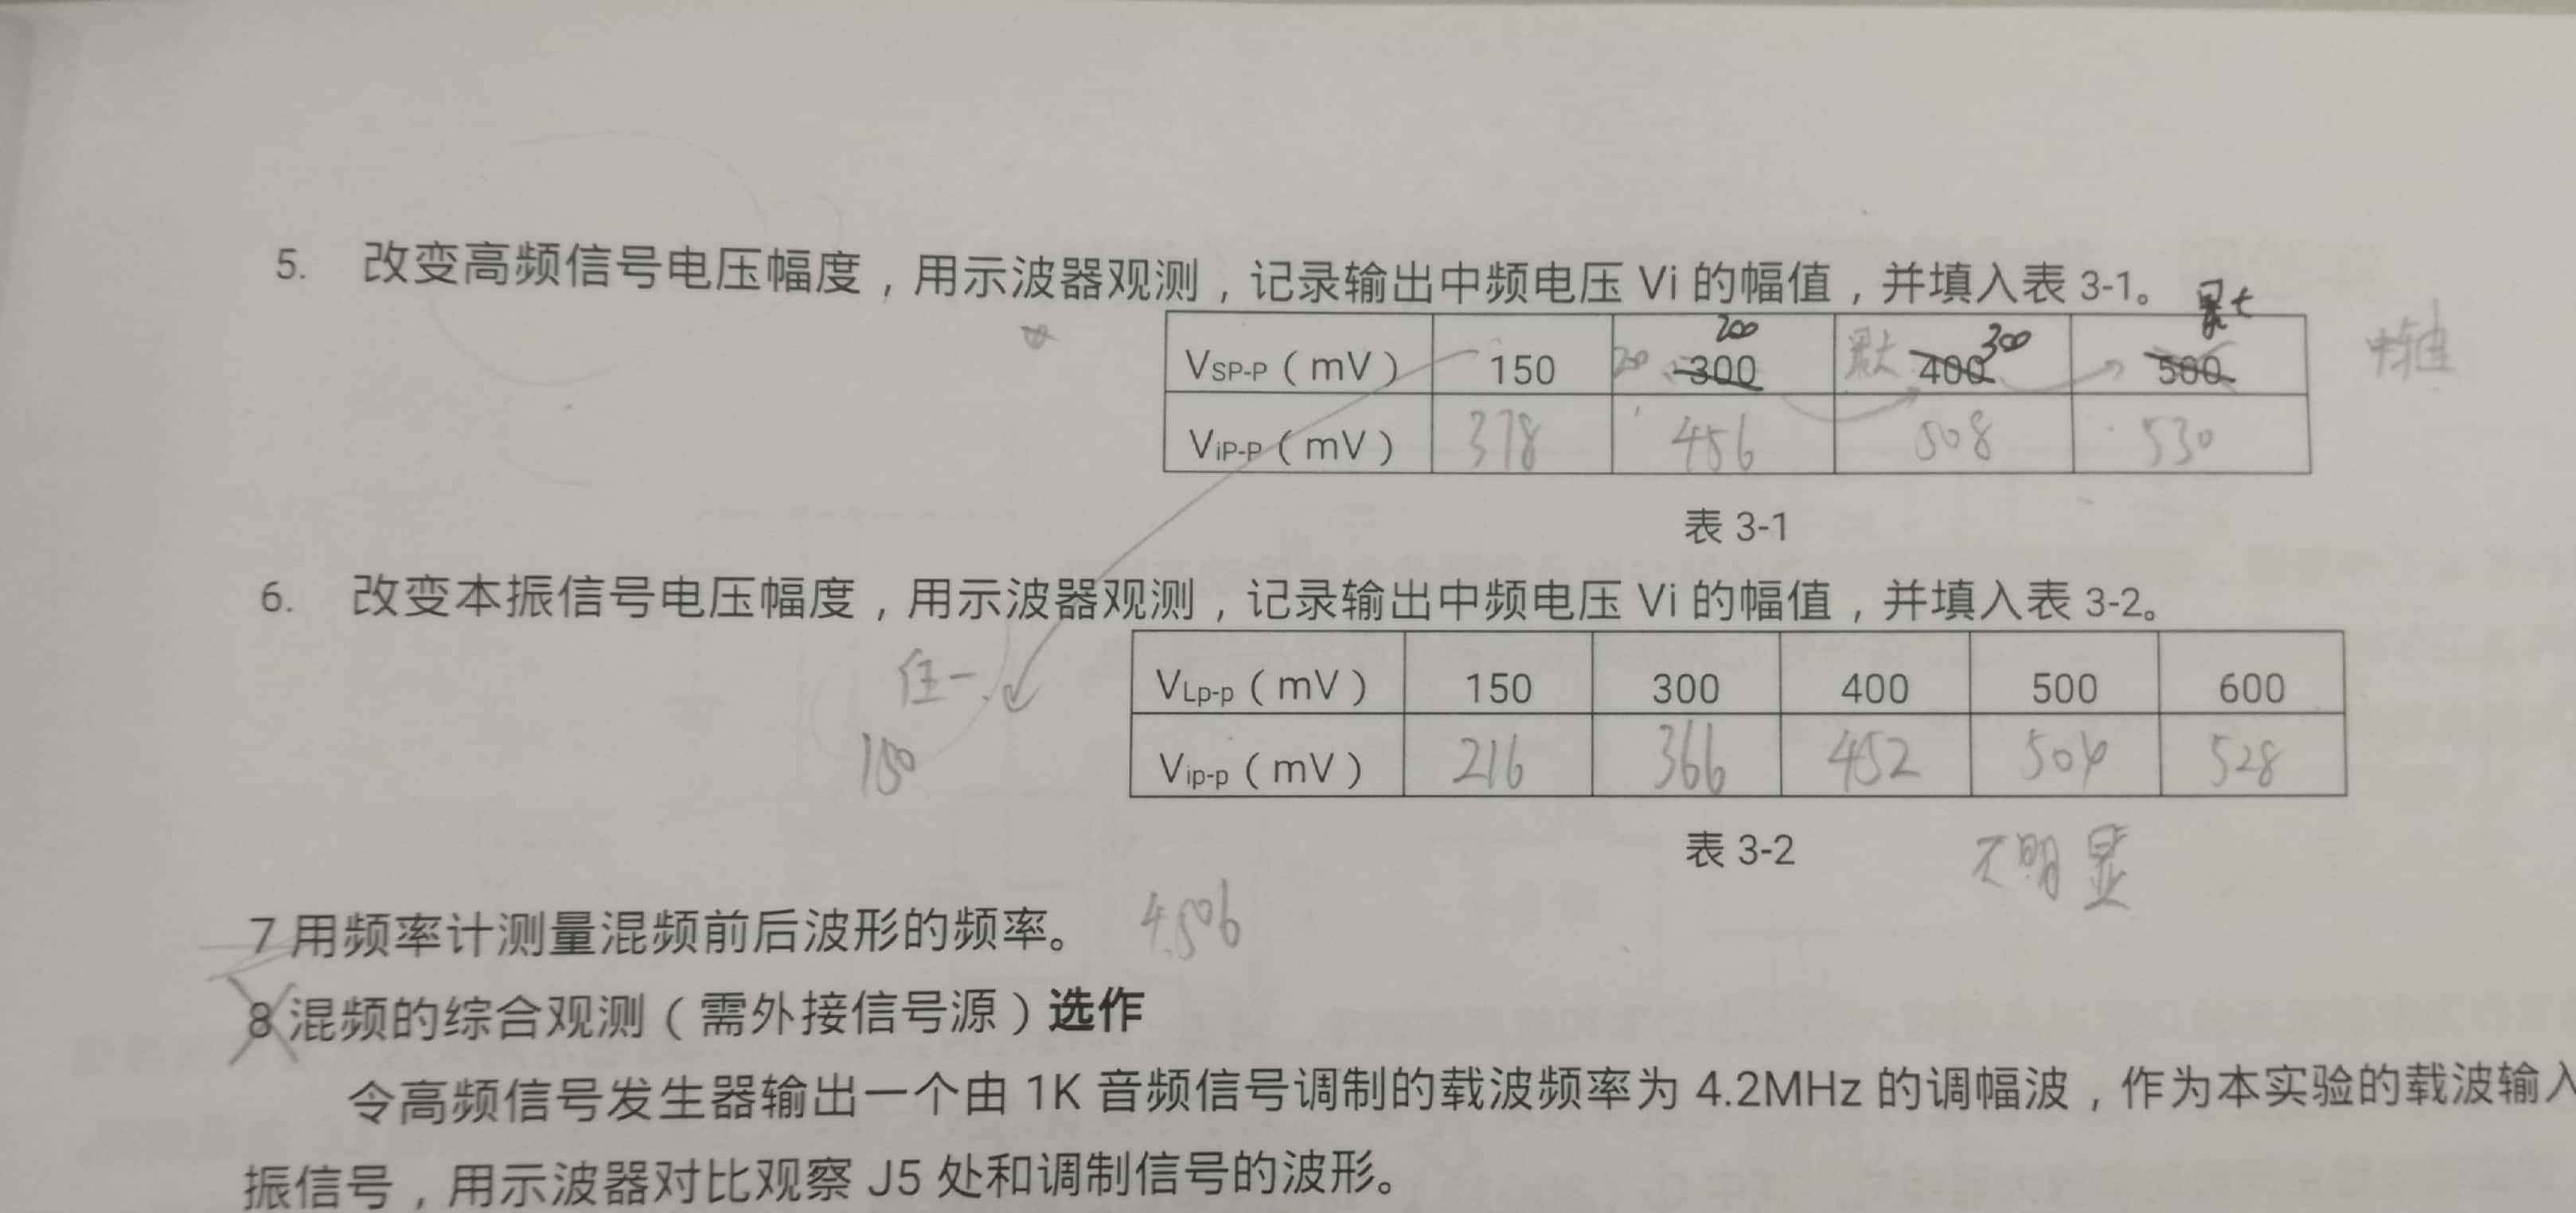 5. 改变高频信号电压幅度，用示波器观测，记录输出中频电压 Vi 的幅值，并填入表 3-1。
最大
200
300
VSP-P（mV） 150 300 400 500
ViP-P（mV） 378 456 508 530
表 3-1
6. 改变本振信号电压幅度，用示波器观测，记录输出中频电压 Vi 的幅值，并填入表 3-2。
任一
150
VLp-p（mV） 150 300 400 500 600
Vip-p（mV） 216 366 452 504 528
表 3-2
不明显
7 用频率计测量混频前后波形的频率。 4.506
8 混频的综合观测（需外接信号源）选作
令高频信号发生器输出一个由 1K 音频信号调制的载波频率为 4.2MHz 的调幅波，作为本实验的载波输入
振信号，用示波器对比观察 J5 处和调制信号的波形。